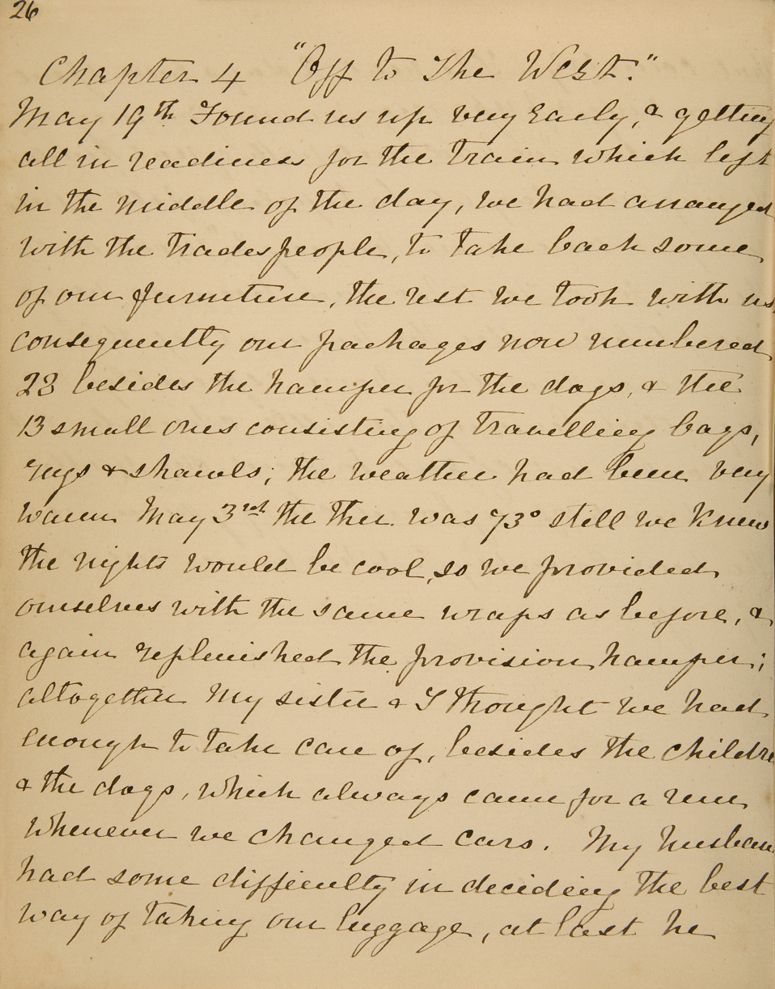 26
Chapter 4 "Off to The West."
May 19th Found us up very Early, & getting
all in readiness for the train which left
in the middle of the day, we had arranged
with the tradespeople, to take back some
of our furniture, the rest we took with us,
consequently our packages now numbered
28 besides the hamper for the dogs, & the
13 small ones consisting of travelling bags,
rugs & shawls; the weather had been very
warm May 3rd the Ther. was 73° still we knew
the nights would be cool, so we provided
ourselves with the same wraps as before, &
again replenished the provision hamper;
altogether my sister & I thought we had
enough to take care of, besides the childre
& the dogs, which always came for a run
whenever we changed cars. My husban
had some difficulty in deciding the best
way of taking our luggage, at last he